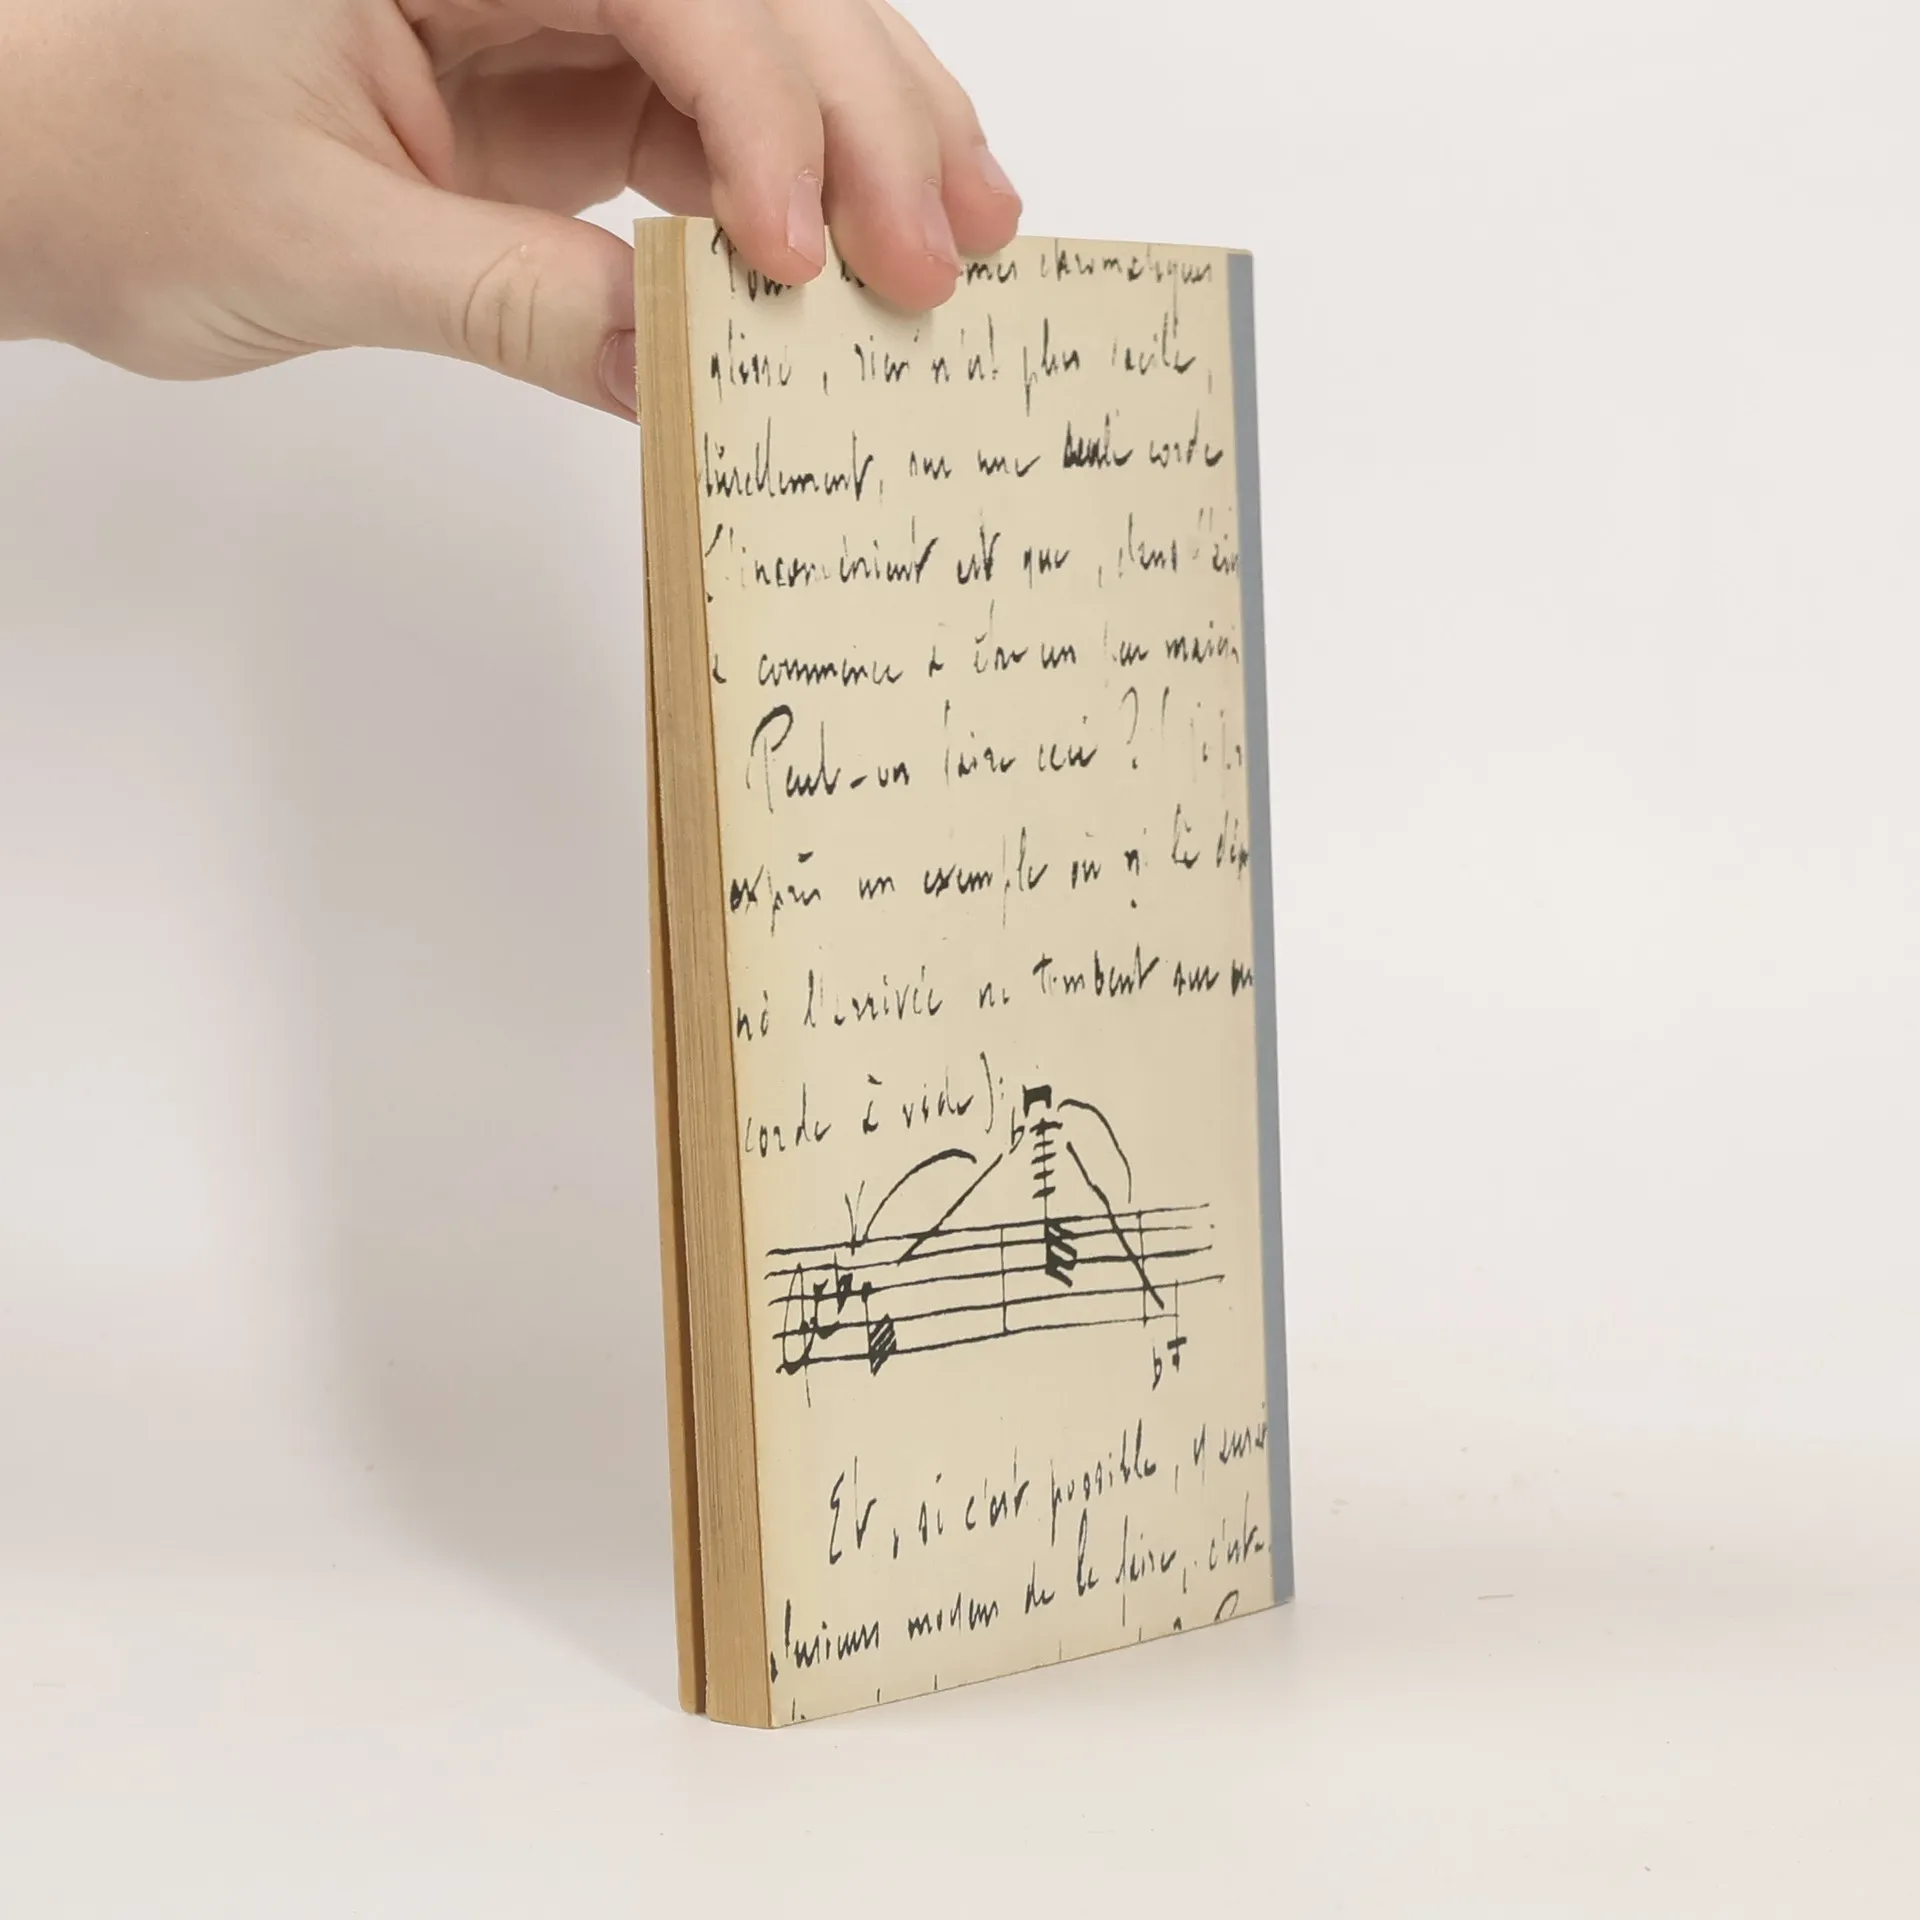 chromatiques
glissé, rien n'est plus facile,
turellement, sur une seule corde
L'inconvénient est que, dans l'ai
commence à être un peu
Peut-on faire ceci ?
exprès un exemple où ni le dép
ni l'arrivée ne tombent sur un
corde à vide) :
Et, si c'est possible, y aurait
plusieurs modens de le faire, c'est-